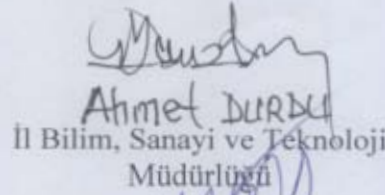 Ahmet DURDU
İl Bilim, Sanayi ve Teknoloji
Müdürlüğü